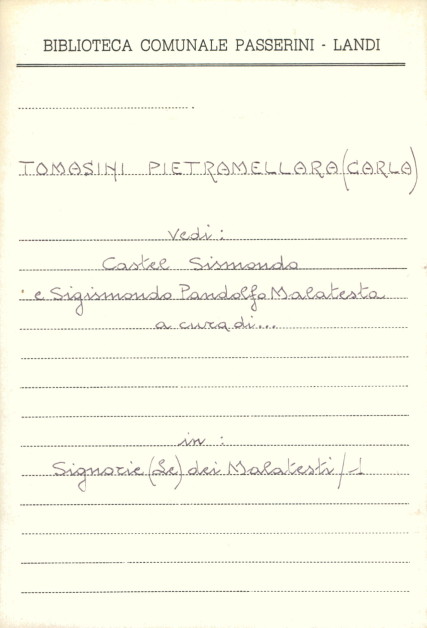 BIBLIOTECA COMUNALE PASSERINI - LANDI
TOMASINI PIETRAMELLARA (CARLA)
Vedi:
Castel Sismondo
e Sigismondo Pandolfo Malatesta
a cura di...
in:
Signorie (Le) dei Malatesti / 1